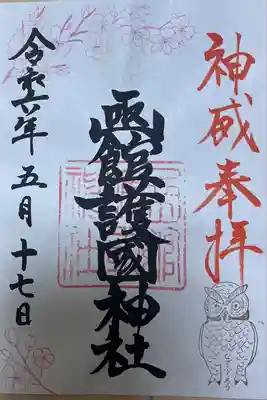 神威奉拝
函館護國神社
令和六年五月十七日